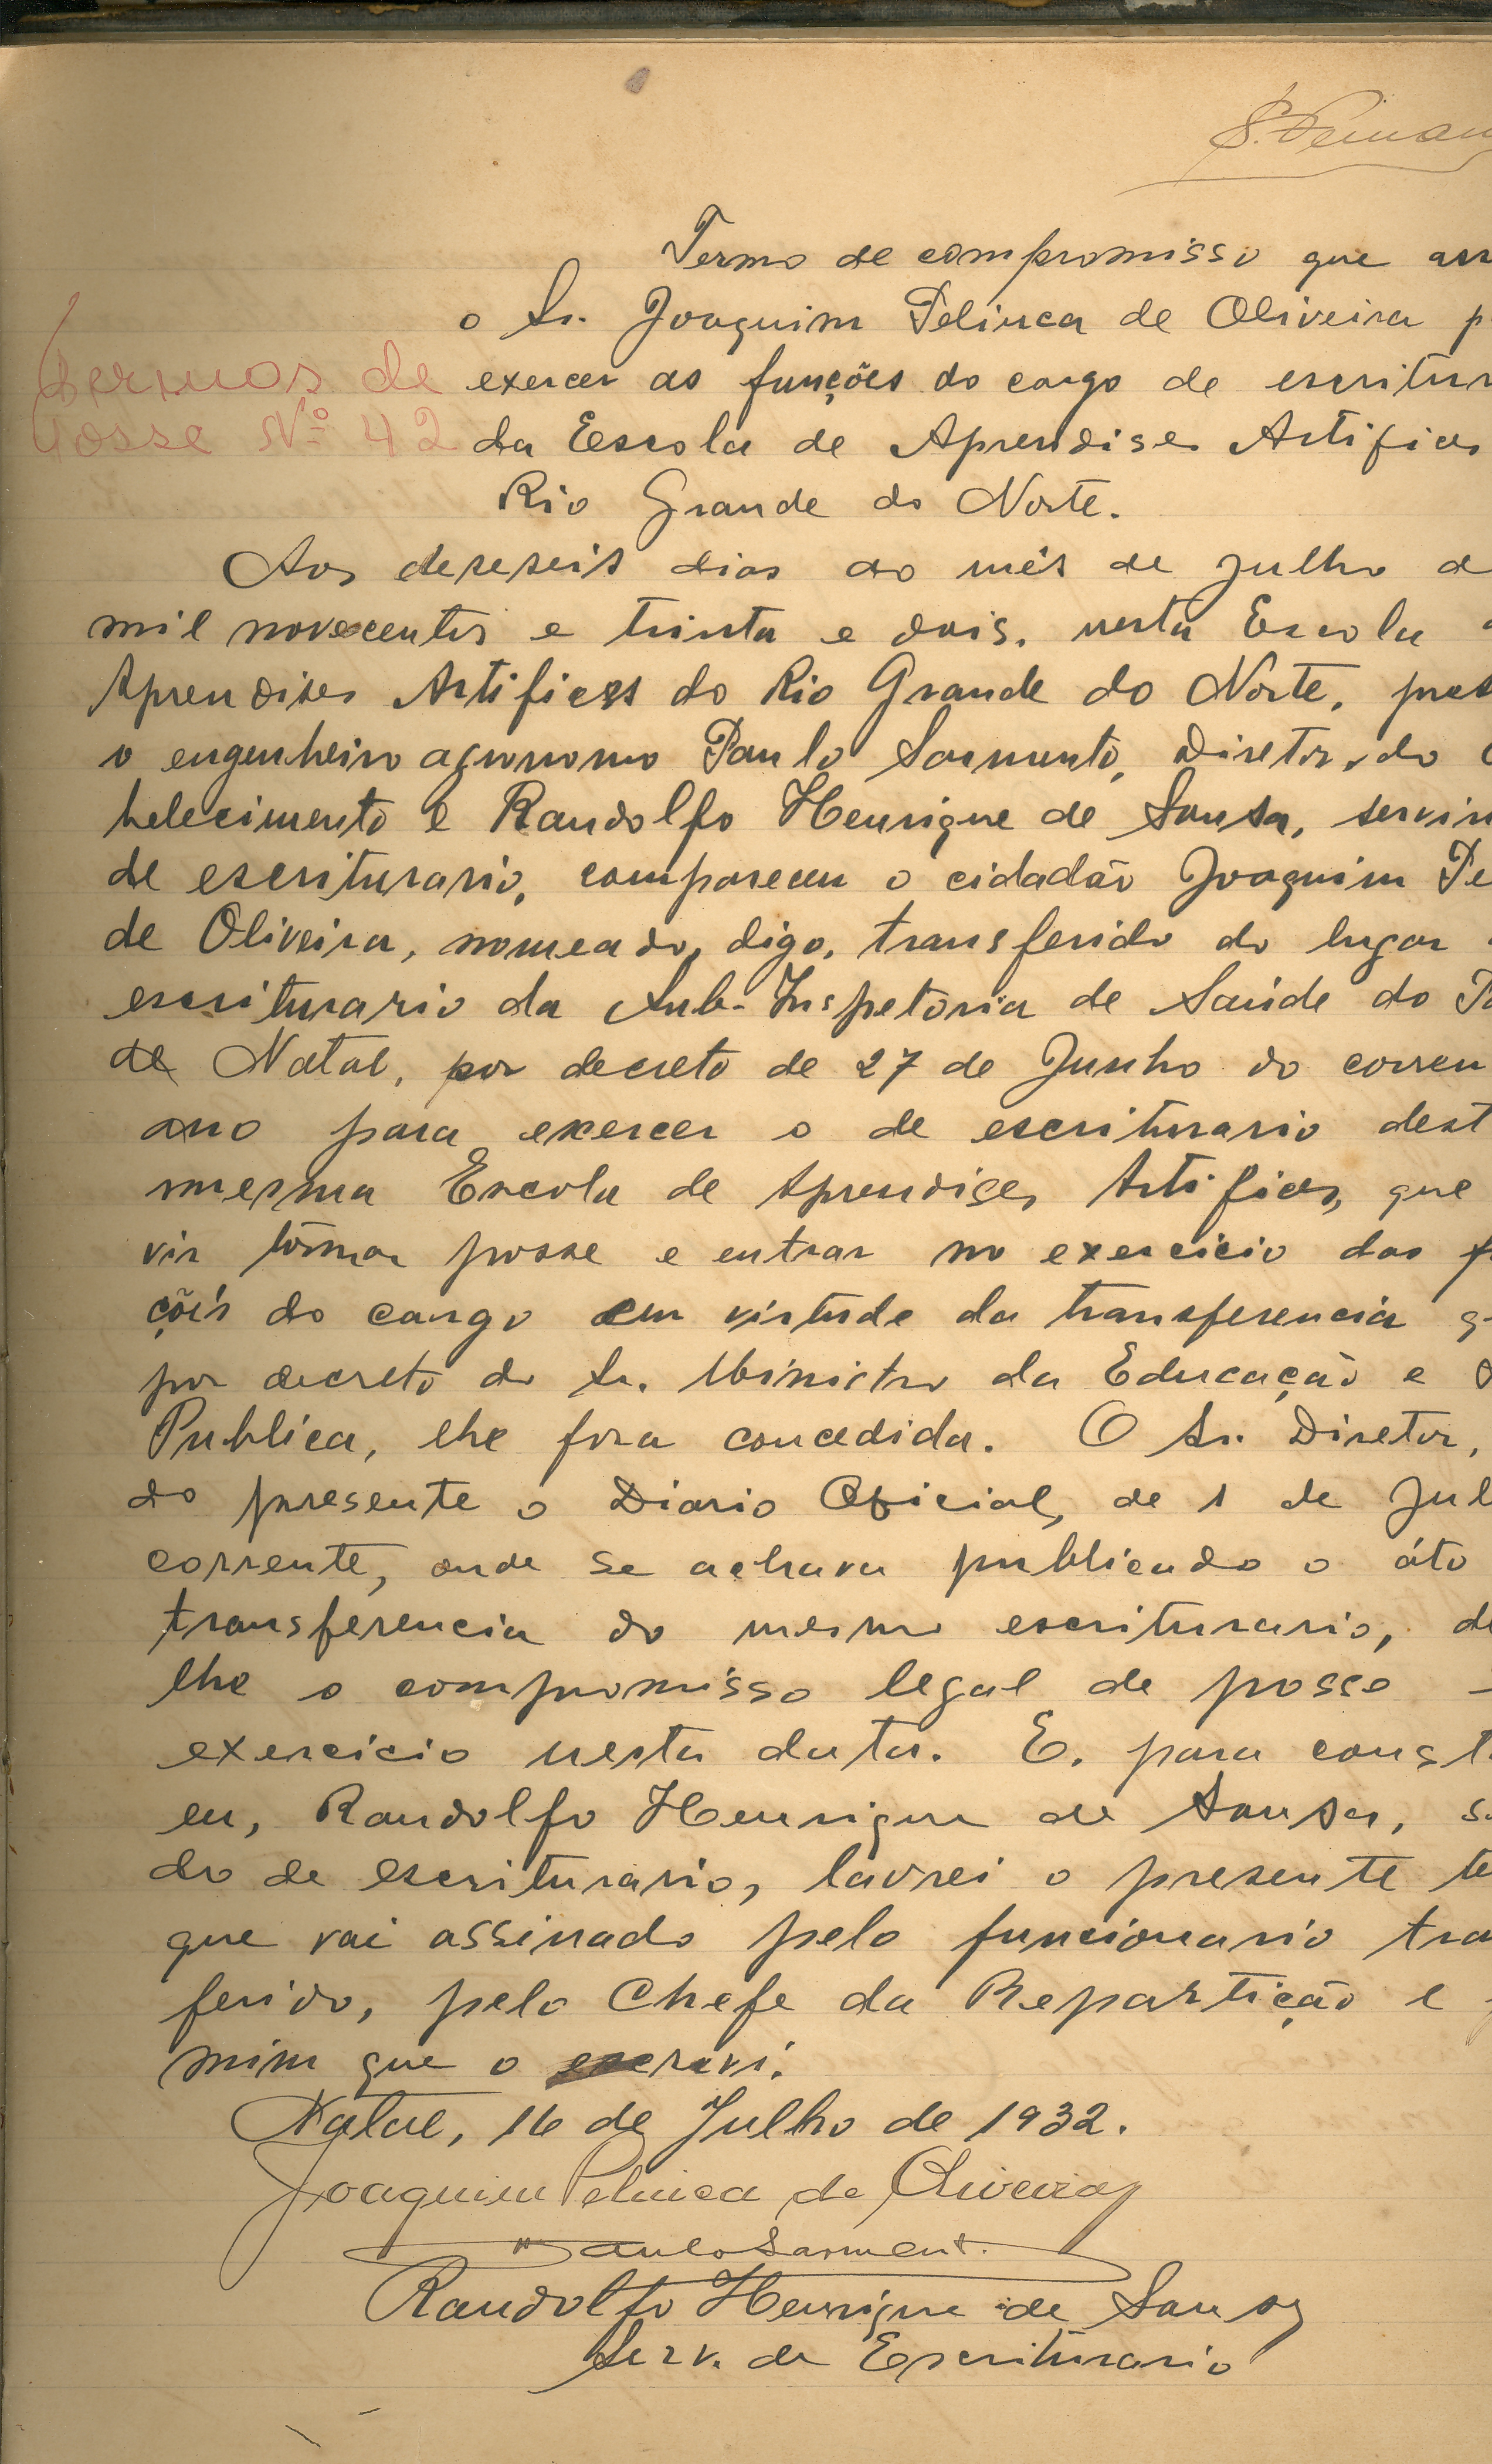 S. Fernan
Termo de compromisso que ass
o Sr. Joaquim Pelinca de Oliveira p
Termos de
exercer as funções do cargo de escritur
Posse Nº 42
da Escola de Aprendises Artifices
Rio Grande do Norte.
Aos deseseis dias do mês de julho d
mil novecentos e trinta e dois, nesta Escola d
Aprendises Artifices do Rio Grande do Norte, pres
o engenheiro agronomo Paulo Sarmento, Diretor, do e
belecimento e Randolfo Henrique de Sousa, servin
de escriturario, compareceu o cidadão Joaquim Pe
de Oliveira, nomeado, digo, transferido do lugar
escriturario da Sub-Inspetoria de Saúde do Po
de Natal, por decreto de 27 de Junho do corren
ano para exercer o de escriturario dest
mesma Escola de Aprendises Artifices, que
vir tômar posse e entrar no exercicio das fu
ções do cargo em virtude da transferencia q
por decreto do Sr. Ministro da Educação e S
Publica, lhe fora concedida. O Sr. Diretor,
do presente o Diario Oficial, de 1 de Jul
corrente, onde se achava publicado o áto
transferencia do mesmo escriturario, de
lhe o compromisso legal de posse
exercicio nesta data. E, para const
eu, Randolfo Henrique de Sousa, s
do de escriturario, lavrei o presente te
que vai assinado pelo funcionario tra
ferido, pelo Chefe da Repartição e
mim que o escrevi.
Natal, 16 de Julho de 1932.
Joaquim Pelinca de Oliveira
Paulo Sarmento.
Randolfo Henrique de Sousa
Serv. de Escriturario